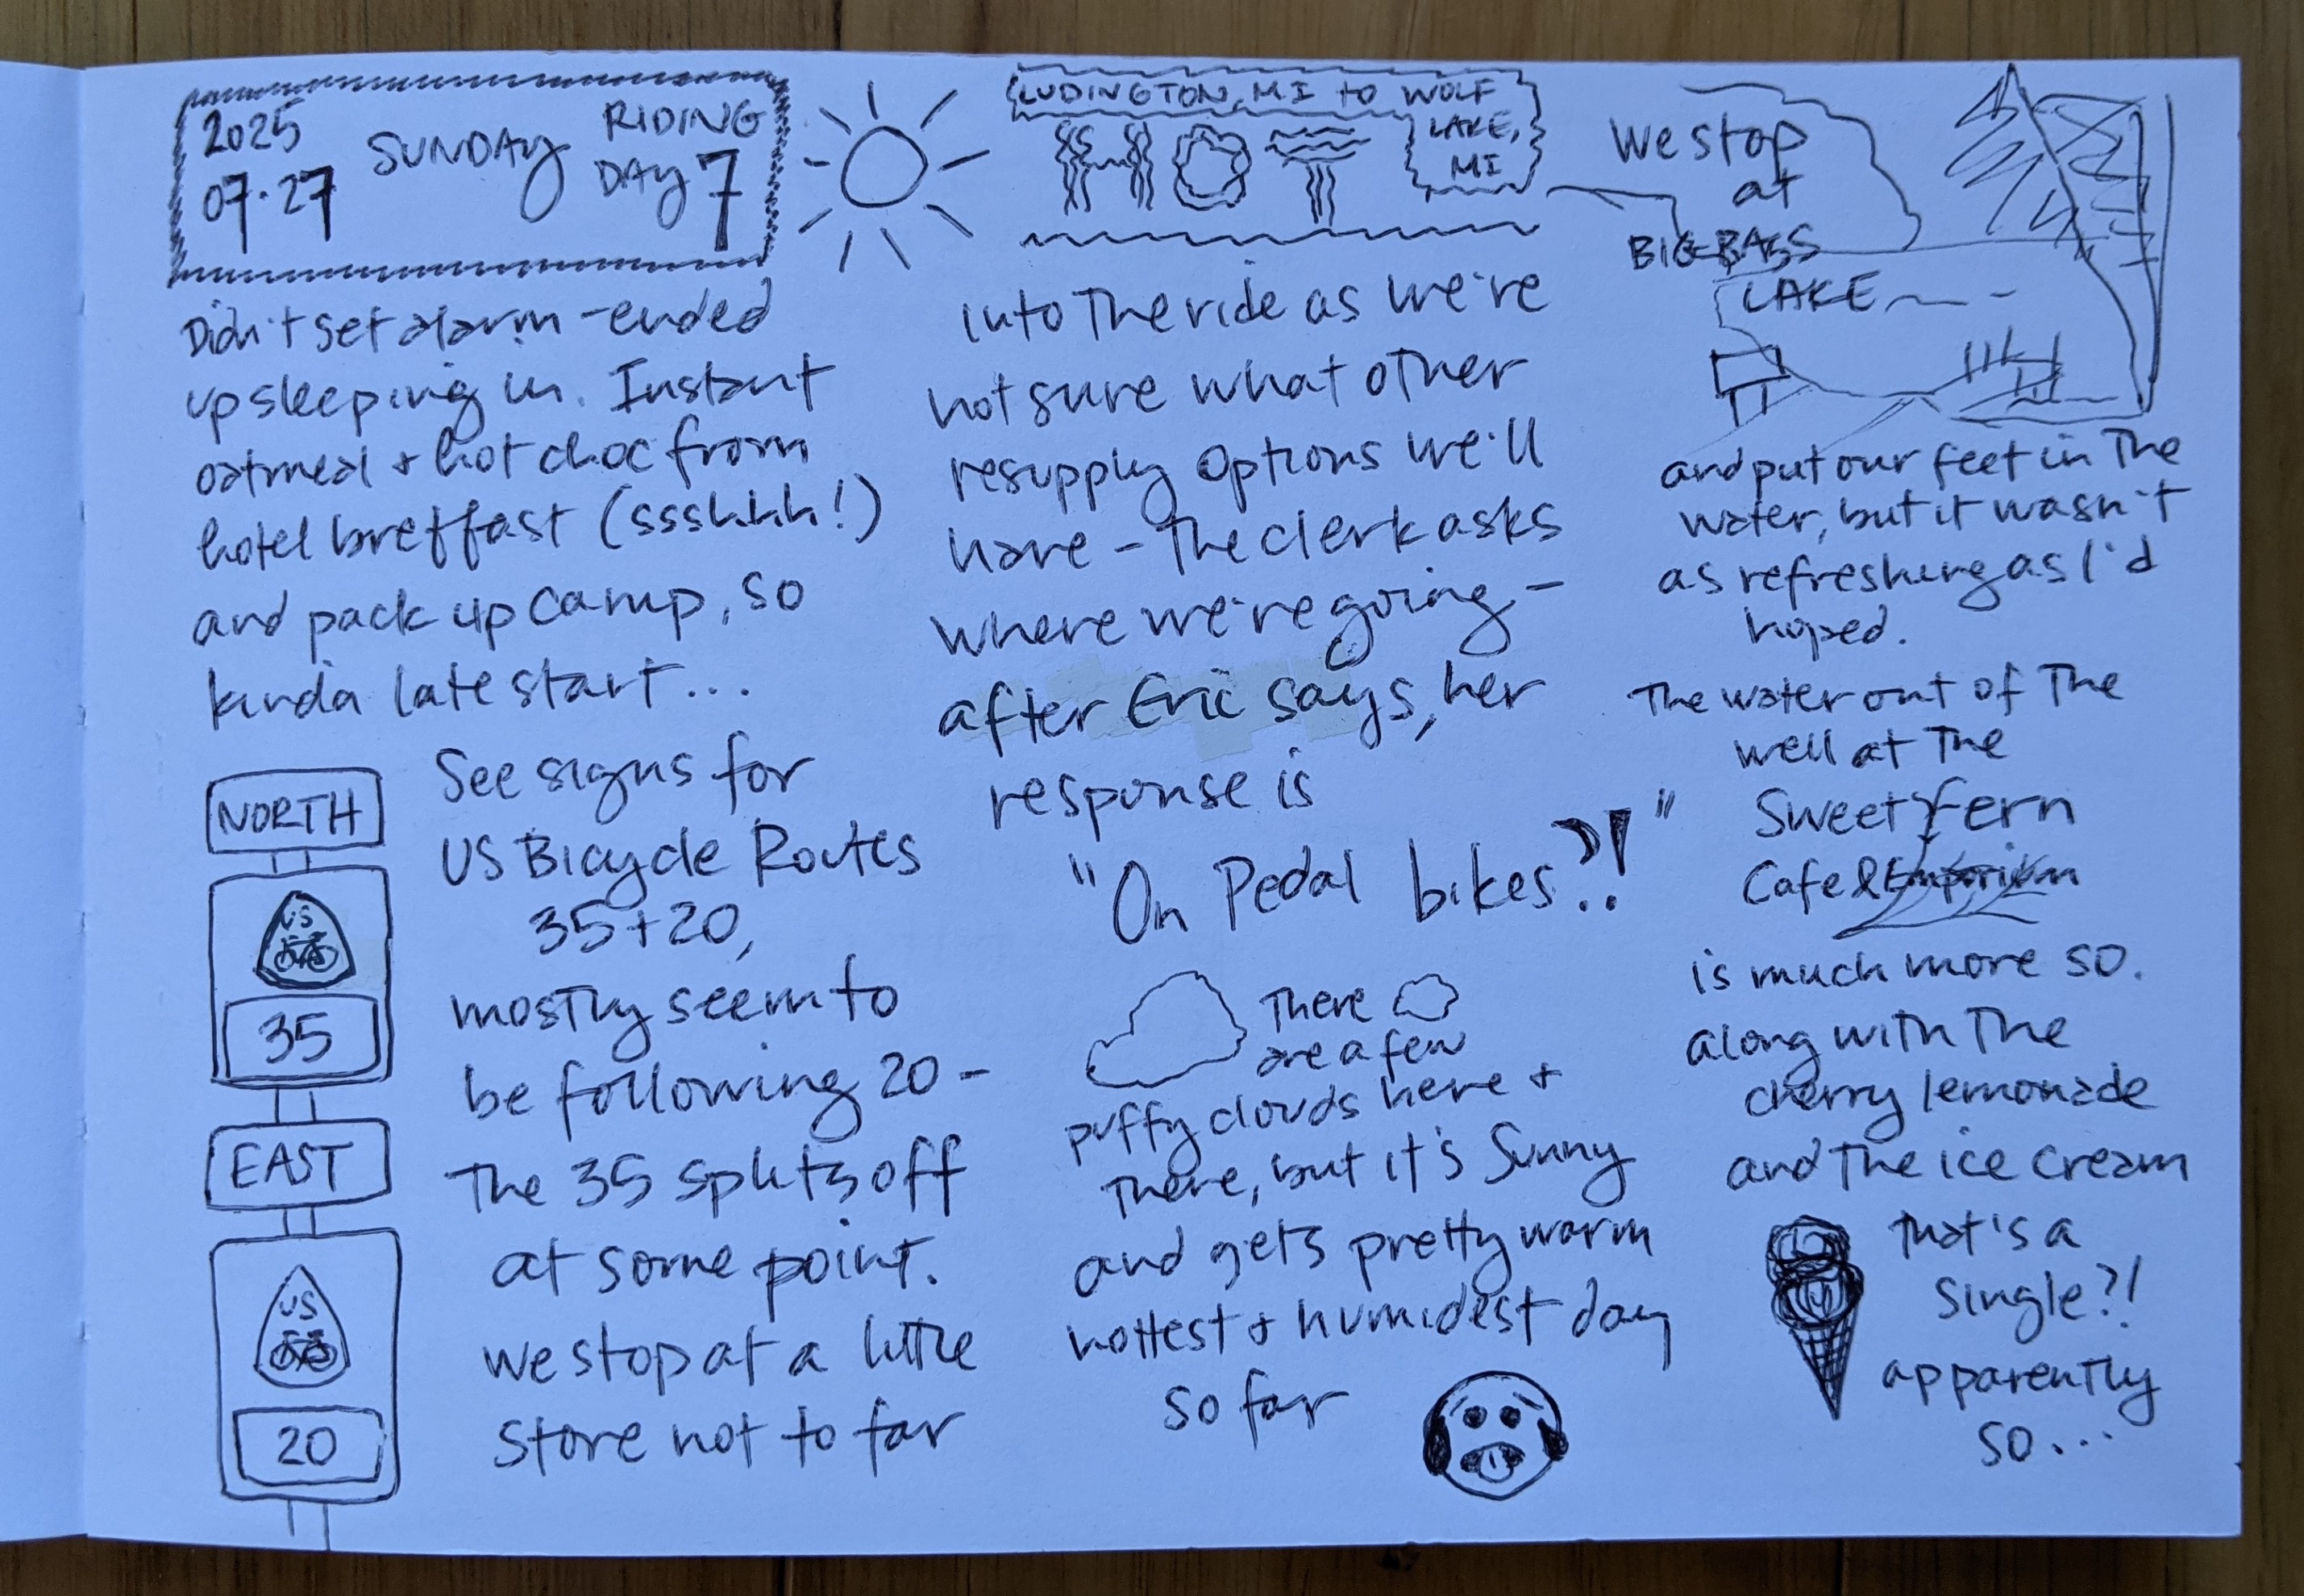 2025
07·27
SUNDAY
RIDING
DAY 7
LUDINGTON, MI to WOLF
LAKE,
MI
HOT
Didn't set alarm - ended
up sleeping in. Instant
oatmeal + hot choc from
hotel breffast (ssshhh!)
and pack up camp, so
kinda late start...
NORTH
US
35
EAST
US
20
See signs for
US Bicycle Routes
35+20,
mostly seem to
be following 20 -
The 35 splits off
at some point.
We stop at a little
store not to far
into The ride as we're
not sure what other
resupply options we'll
have - The clerk asks
where we're going -
after Eric says, her
response is
"On Pedal bikes?!"
There
are a few
puffy clouds here +
There, but it's Sunny
and gets pretty warm
hottest + humidest day
so far
We stop
at
BIG BASS
LAKE
and put our feet in The
water, but it wasn't
as refreshing as I'd
hoped.
The water out of The
well at The
Sweet Fern
Cafe & Emporium
is much more so.
along with The
cherry lemonade
and The ice cream
That's a
single?!
apparently
so...